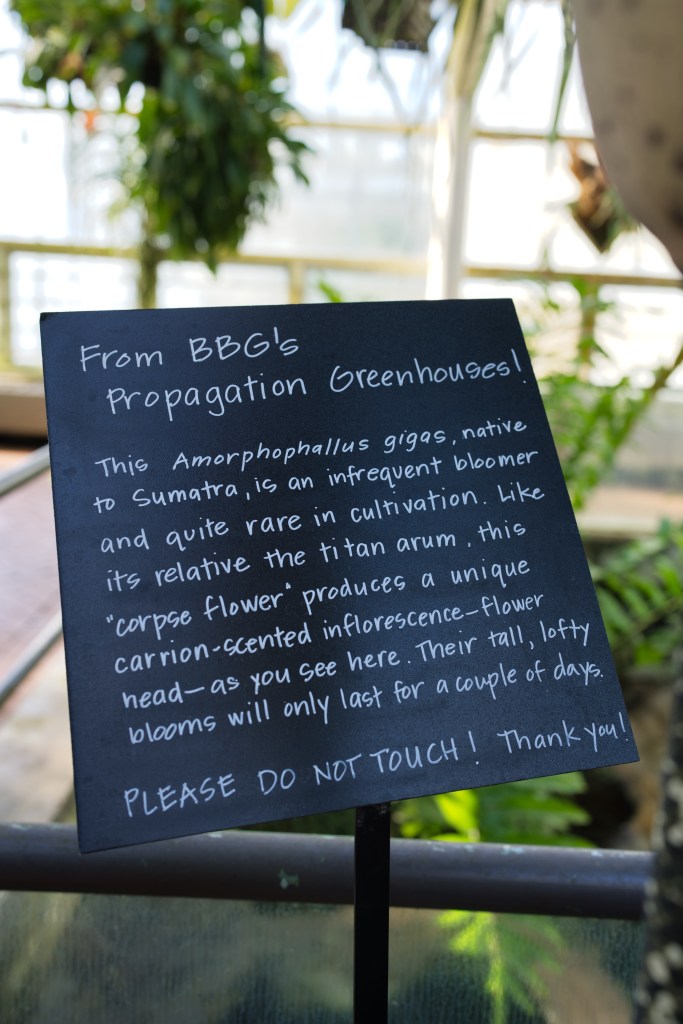 From BBG's
Propagation Greenhouses!
This Amorphophallus gigas, native
to Sumatra, is an infrequent bloomer
and quite rare in cultivation. Like
its relative the titan arum, this
"corpse flower" produces a unique
carrion-scented inflorescence—flower
head—as you see here. Their tall, lofty
blooms will only last for a couple of days.
PLEASE DO NOT TOUCH! Thank you!